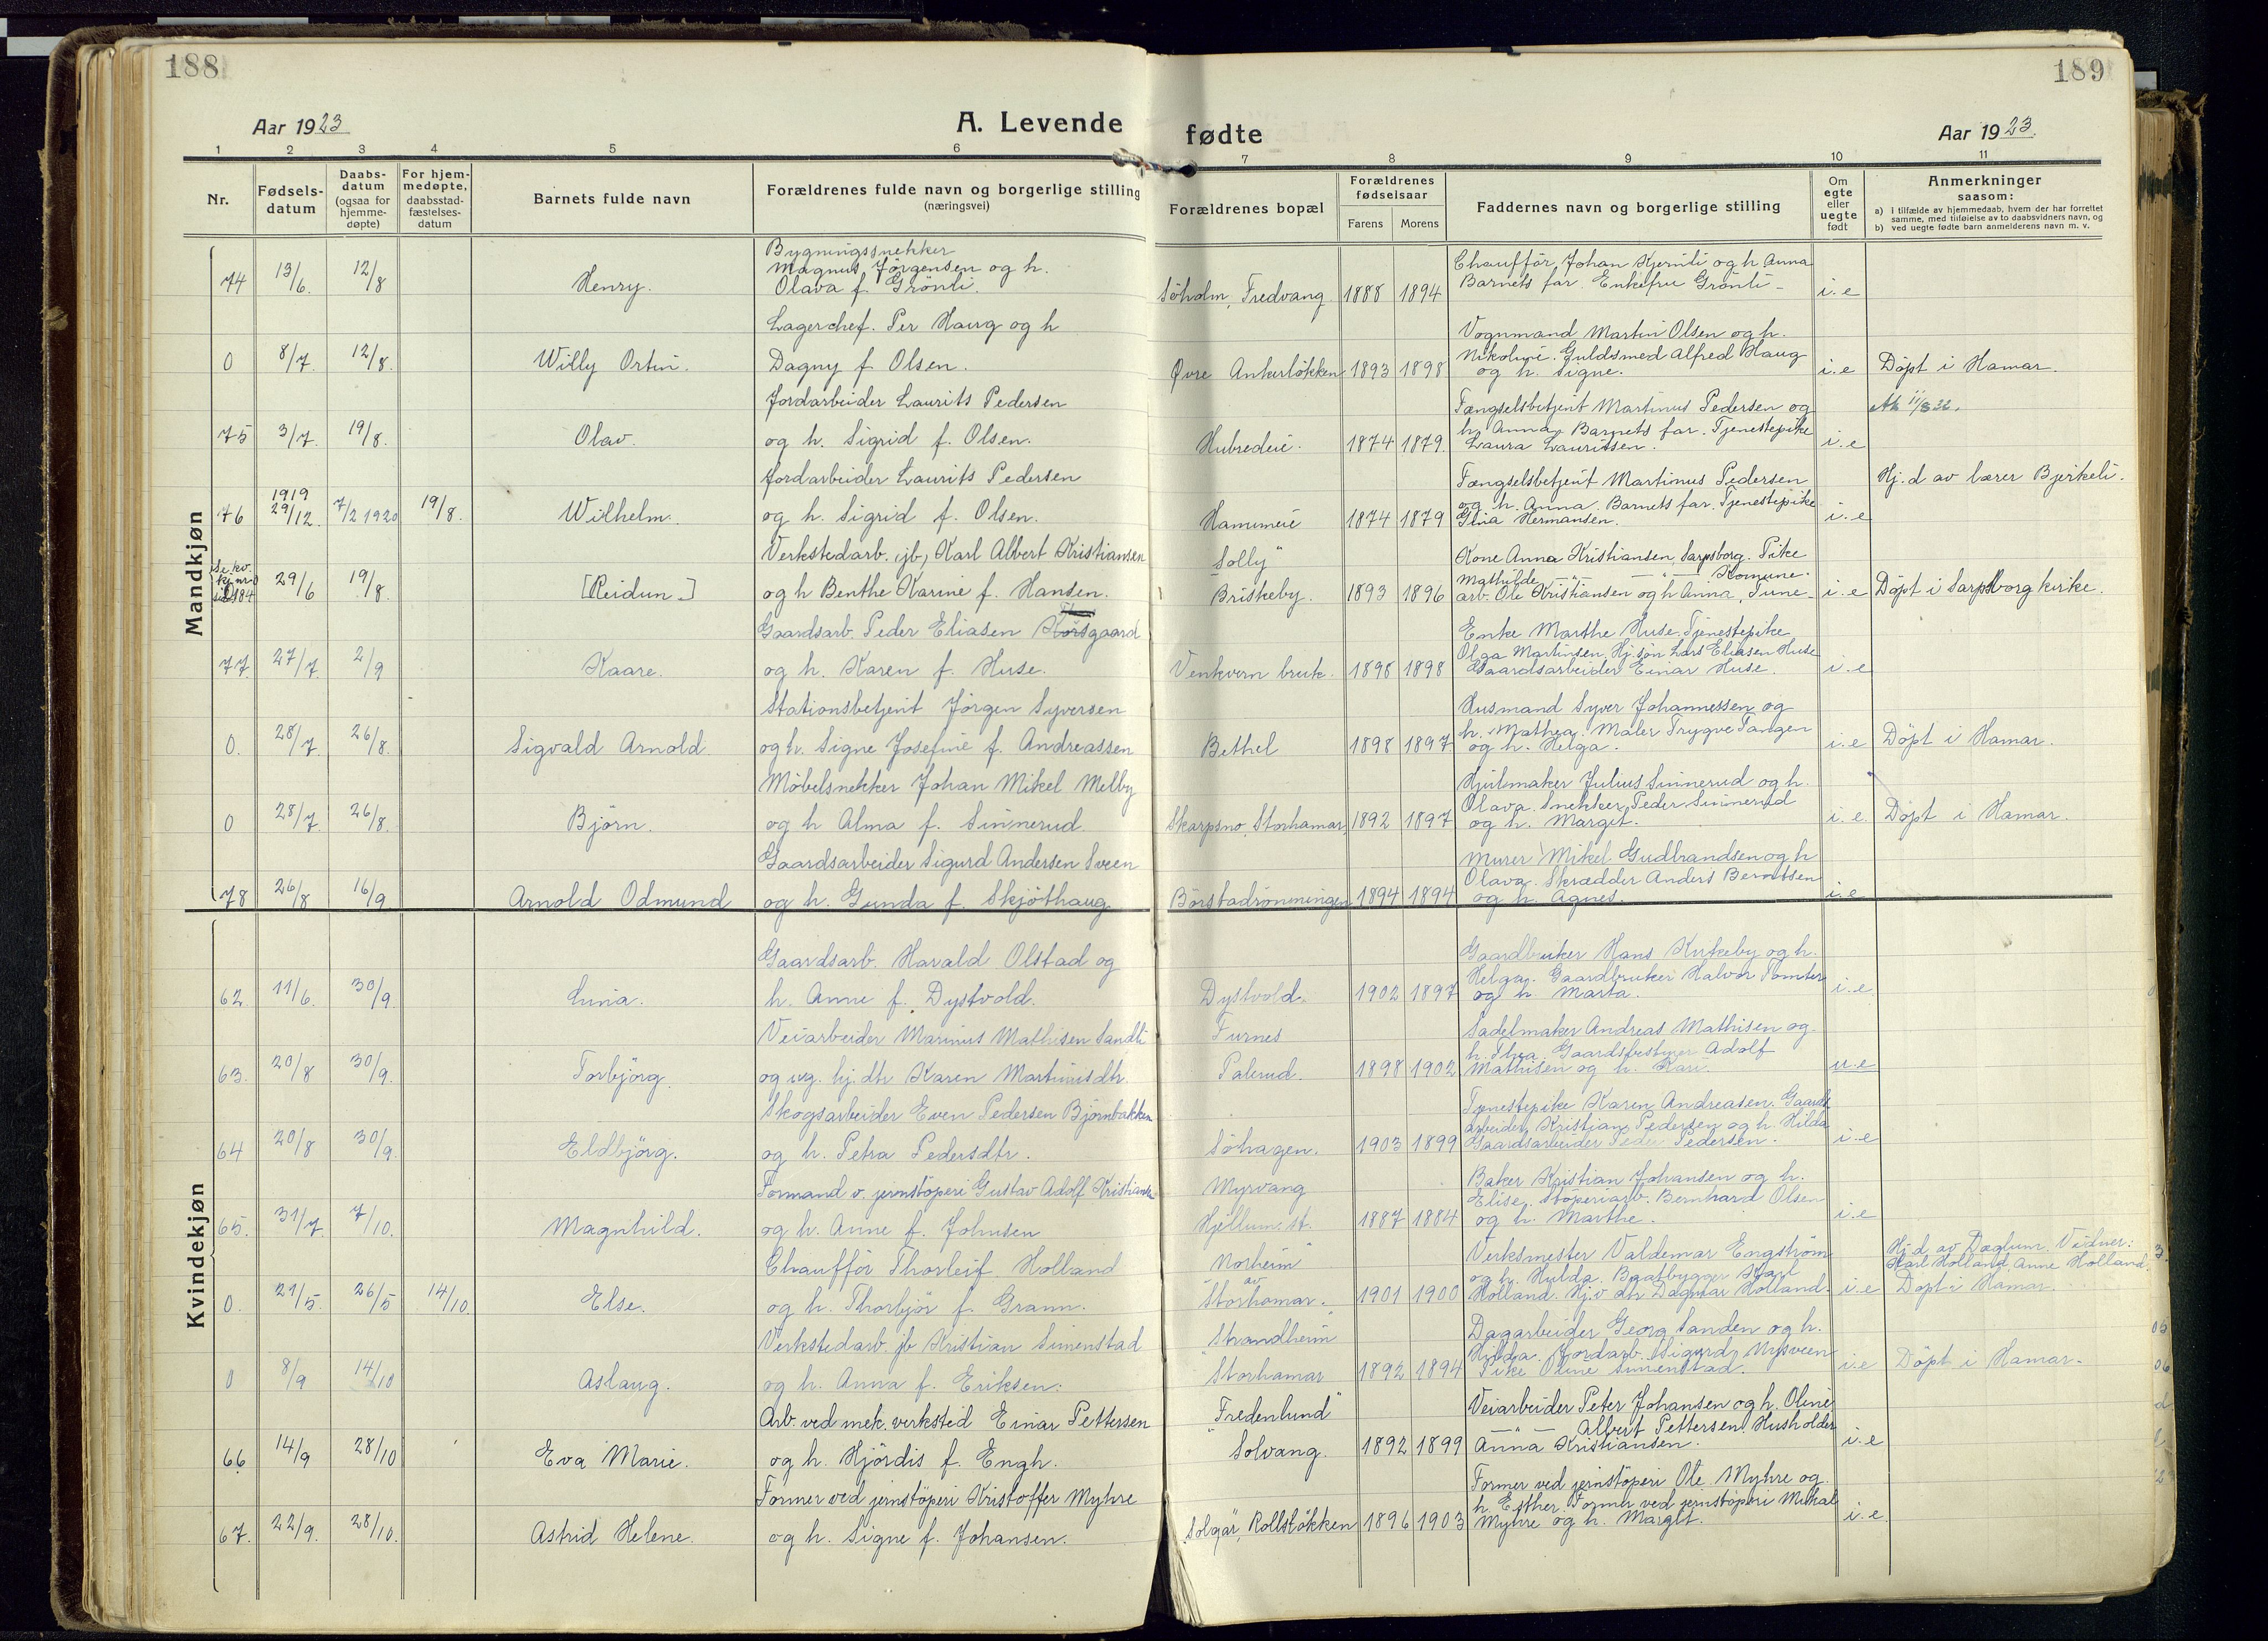 188
189
Aar 1923
A. Levende
fødte
Aar 1923.
1 2 3 4 5 6 7 8 9 10 11
Nr.
Fødsels-
datum
Daabs-
datum
(ogsaa for
hjemme-
døpte)
For hjem-
medøpte,
daabsstad-
fæstelses-
datum
Barnets fulde navn
Forældrenes fulde navn og borgerlige stilling
(næringsvei)
Forældrenes bopæl
Forældrenes
fødselsaar
Farens Morens
Faddernes navn og borgerlige stilling
Om
egte
eller
uegte
født
Anmerkninger
saasom:
a) i tilfælde av hjemmedaab, hvem der har forrettet
samme, med tilføielse av to daabsvidners navn, og
b) ved uegte fødte barn anmelderens navn m. v.
Mandkjøn
Bygningssnekker
Magnus Jörgensen og h.
74 13/6. 12/8 Henry. Olava f. Grönli. Söholm, Fredvang 1888 1894
Chaufför Johan Kjernli og h. Anna
Barnets far. Enkefru Grönli - i.e
Lagerchef. Per Haug og h
0 8/7. 12/8. Willy Ortin. Dagny f. Olsen. Øvre Ankerlökken 1893 1898
Vognmand Martin Olsen og h.
Nikoline. Guldsmed Alfred Haug
og h. Signe. i.e Döpt i Hamar.
Jordarbeider Laurits Pedersen
75 3/7. 19/8. Olav. og h. Sigrid f. Olsen. Hubredeie. 1874 1879.
Fængselsbetjent Martinus Pedersen og
h. Anna. Barnets far. Tjenestepike
Laura Lauritsen. i.e
11/8 32.
Jordarbeider Laurits Pedersen
76 1919 29/12. 7/2 1920 19/8. Wilhelm. og h. Sigrid f. Olsen. Hammeie 1874 1879
Fængselsbetjent Martinus Pedersen
og h. Anna. Barnets far. Tjenestepike
Gina Hermansen. i.e
Hj.d av lærer Bjerkeli.
Verkstedarb. jb, Karl Albert Kristiansen
29/6 19/8. [Reidun.] og h Benthe Karine f. Hansen. "Solly" Briskeby. 1893 1896
Kone Anna Kristiansen, Sarpsborg. Pike
Mathilde — " — — " — Komune-
arb. Ole Kristiansen og h Anna, Tune- i.e Döpt i Sarpsborg kirke.
Gaardsarb. Peder Eliasen Korsgaard
77. 27/7. 2/9 Kaare. og h. Karen f. Huse. Venkvern bruk. 1898 1898
Enke Marthe Huse. Tjenestepike
Olga Martinsen. Hj. søn Lars Eliasen Huse
Gaardsarbeider Einar Huse. i.e
Stationsbetjent Jörgen Syversen
0. 28/7. 26/8. Sigvald Arnold og h. Signe Josefine f. Andreassen Bethel 1898 1897
Husmand Syver Johannessen og
h. Mathea. Maler Trygve Tangen
og h. Helga. i.e Döpt i Hamar.
Möbelsnekker Johan Mikel Melby
0 28/7 26/8. Björn. og h Alma f. Sinnerud Skarpsno, Storhamar, 1892 1897
Hjulmaker Julius Sinnerud og h.
Olava. Snekker Peder Sinnerud
og h. Margit. i.e. Döpt i Hamar.
Gaardsarbeider Sigurd Andersen Sveen
78 26/8 16/9. Arnold Odmund og h. Gunda f. Skjöthaug Börstadrönningen 1894 1894
Murer Mikel Gudbrandsen og h
Olava. Skrædder Anders Berntsen
og h. Agnes. i.e
Kvindekjøn
Gaardsarb. Harald Olstad og
62 11/6. 30/9. h. Anne f. Dystvold. Dystvold. 1902 1897
Gaardbruker Hans Kirkeby og h.
Helga. Gaardbruker Halvor Tomter
og h Marta. i.e.
Veiarbeider Marinus Mathisen Sandli
63. 20/8 30/9. Torbjörg. og ug. hj. dtr Karen Martinusdtr. Furnes Palerud. 1898 1902
Sadelmaker Andreas Mathisen og
h. Thea. Gaardsbestyrer Adolf
Mathisen og h. Kari. u.e
Skogsarbeider Even Pedersen Björnbakken
64 20/8 30/9. Eldbjörg. og h. Petra Pedersdtr. Söhagen. 1903 1899
Tjenestepike Karen Andreasen. Gaards
arbeider Kristian Pedersen og h. Hilda
Gaardsarbeider Peder Pedersen. i.e
Formand v. jernstöperi Gustav Adolf Kristiansen
65. 31/7. 7/10. Magnhild. og h. Anne f. Johnsen Myrvang Hjellum. st. 1887 1884
Baker Kristian Johansen og h.
Elise. Stöperiarb. Bernhard Olsen
og h. Marthe. i.e
Chaufför Thorleif Holland
0. 21/5. 26/5 14/10. Else. og h. Thorbjör f. Grann. "Norheim" av Storhamar. 1901 1900
Verksmester Valdemar Engström
og h. Hulda. Baatbygger Karl
Holland. Hj.v dtr. Dagmar Holland. i.e
Hj.d av Daglum. Vidner:
Karl Holland, Anne Holland.
Döpt i Hamar.
Verkstedarb. jb Kristian Simenstad
0 8/9 14/10 Aslaug. og h. Anna f. Eriksen. "Strandheim" Storhamar 1892 1894
Dagarbeider Georg Sanden og h.
Hilda. Jordarb. Sigurd Nysveen
Pike Oline Simenstad. i.e Döpt i Hamar.
Arb. ved mek. verksted Einar Pettersen
66 14/9 28/10 Eva Marie. og h. Hjördis f. Engh. "Fredenlund" Solvang. 1892 1899
Veiarbeider Peter Johansen og h. Oline
— " — Albert Pettersen. Husholder
Anna Kristiansen. i.e
Former ved jernstöperi Kristoffer Myhre
67. 22/9. 28/10. Astrid Helene. og h. Signe f. Johansen. Solgår, Rollslökken 1896 1903
Former ved jernstöperi Ole Myhre og
h. Esther. Former ved jernstöperi Mikal
Myhre og h. Margit. i.e.